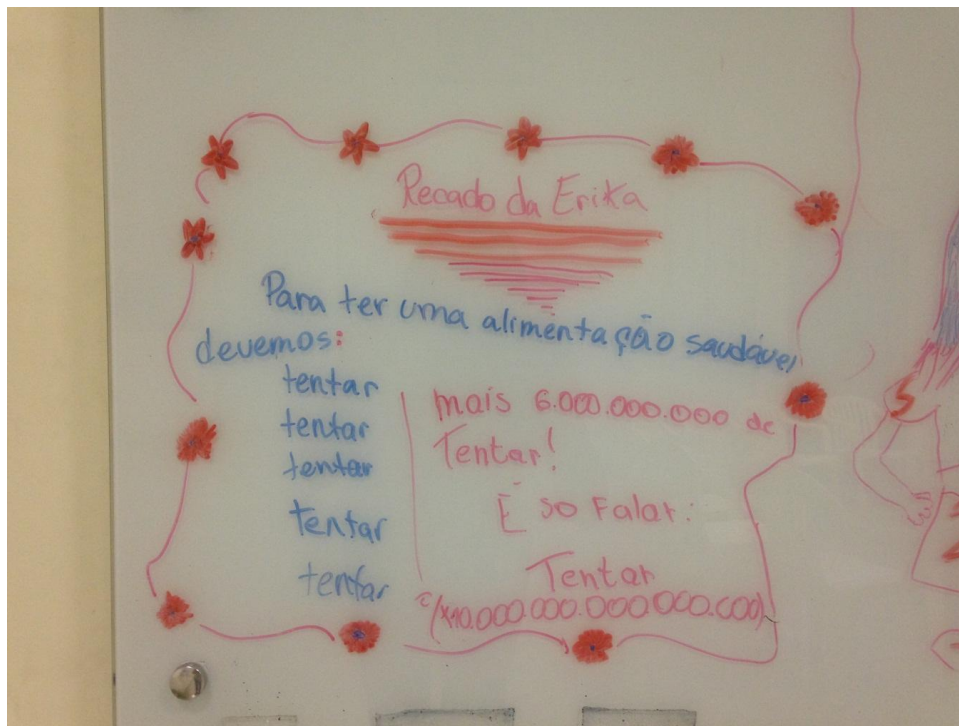 Recado da Erika
Para ter uma alimentação saudável
devemos:
tentar
tentar
tentar
tentar
tentar
mais 6.000.000.000 de
Tentar!
É so Falar:
Tentar